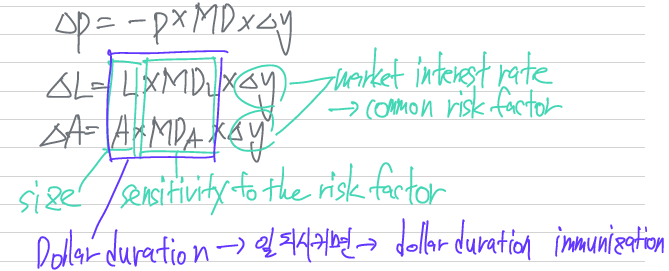 Δp = -p×MD×Δy
ΔL = L×MD_L×Δy market interest rate
→ common risk factor
ΔA = A×MD_A×Δy
size sensitivity to the risk factor
Dollar duration → 일치시키면 → dollar duration immunization